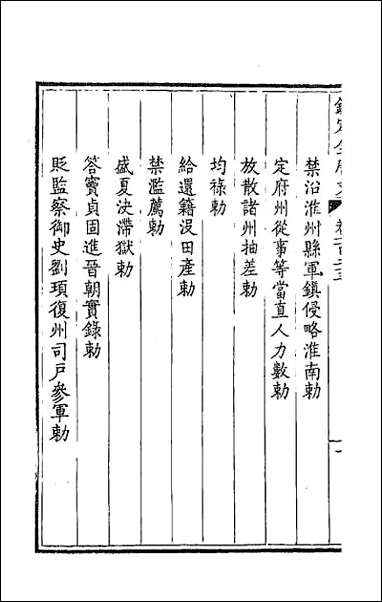 禁沿淮州縣軍鎮侵略淮南勅
定府州從事等當直人力數勅
放散諸州抽差勅
均祿勅
給還籍沒田產勅
禁濫薦勅
盛夏決滯獄勅
答竇貞固進晉朝實錄勅
貶監察御史劉頊復州司戶參軍勅